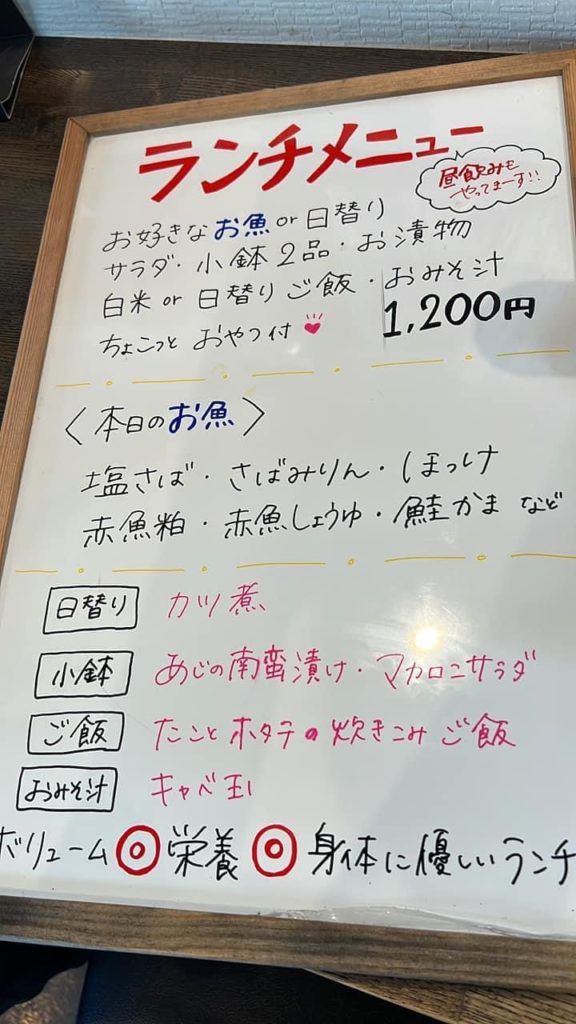 ランチメニュー
昼飲みも
やってまーす!!
お好きなお魚or日替り
サラダ・小鉢2品・お漬物
白米or日替りご飯・おみそ汁
ちょこっとおやつ付
1,200円
〈本日のお魚〉
塩さば・さばみりん・しまほっけ
赤魚粕・赤魚しょうゆ・鮭かまなど
日替り カツ煮
小鉢 あじの南蛮漬け・マカロニサラダ
ご飯 たことホタテの炊きこみご飯
おみそ汁 キャベ玉
ボリューム◎栄養◎身体に優しいランチ